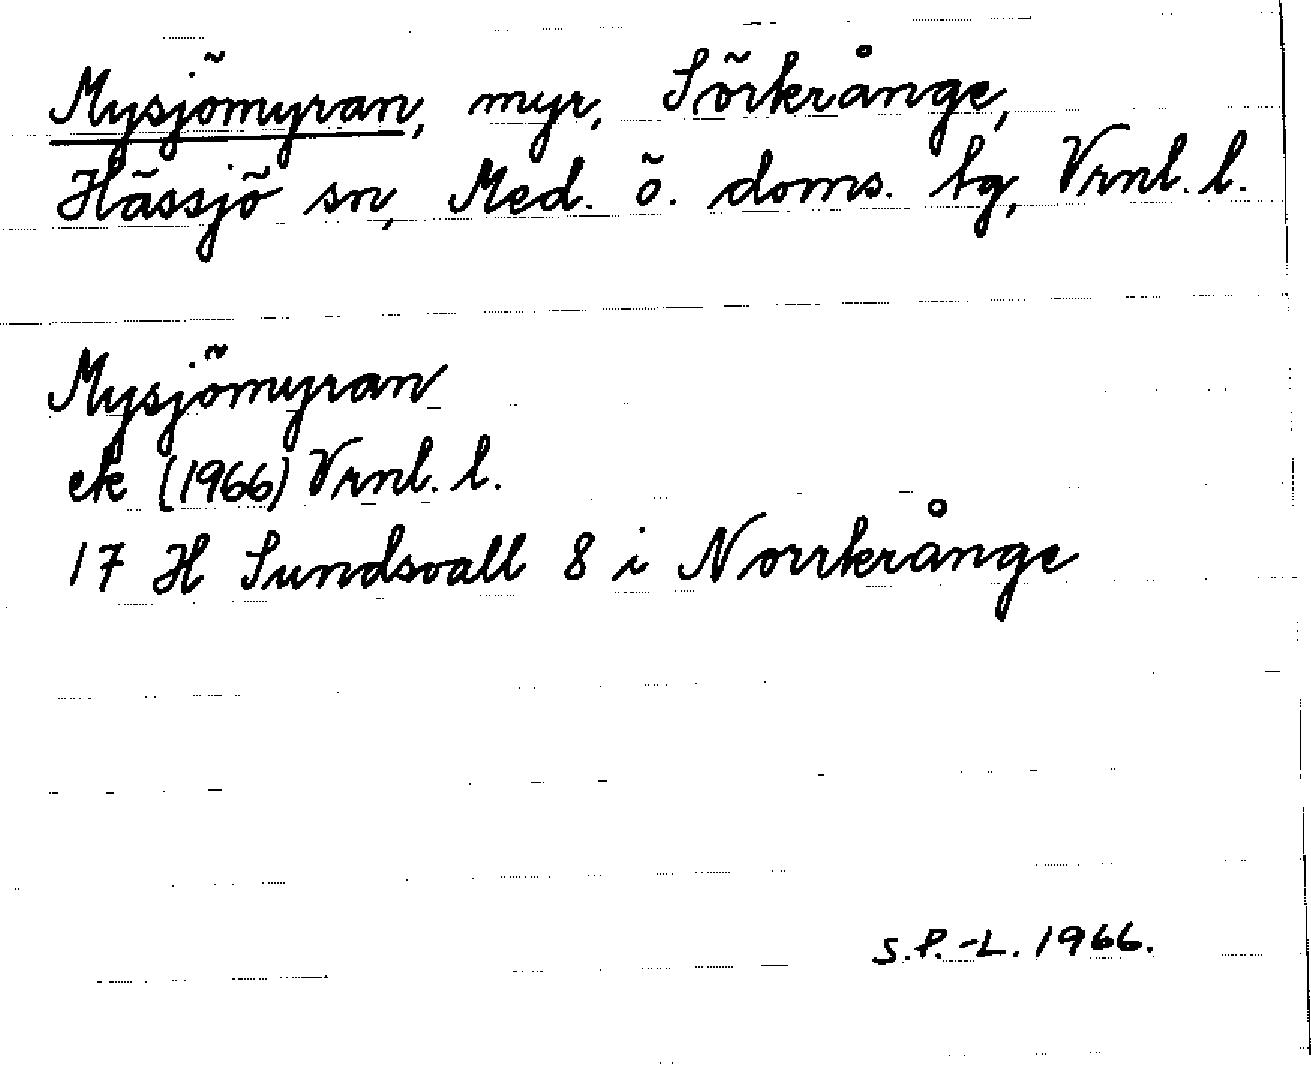 Mysjömyran, myr, Sörkrånge,
Hässjö sn, Med. ö. doms. tg, Vrnl. l.
Mysjömyran
ek (1966) Vrnl. l.
17 H Sundsvall 8 i Norrkrånge
S.P.-L. 1966.